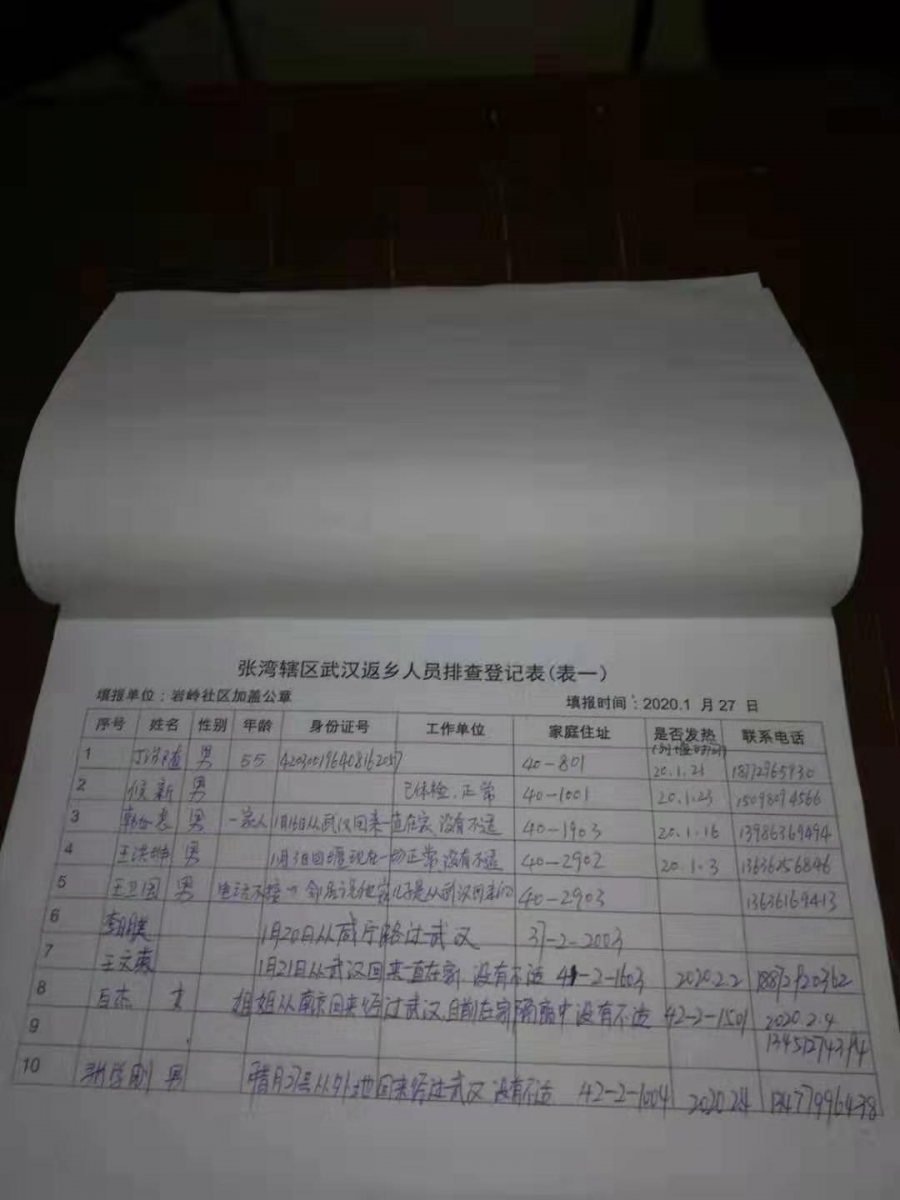 张湾辖区武汉返乡人员排查登记表(表一)
填报单位：岩岭社区加盖公章 填报时间：2020.1 月 27 日
序号 姓名 性别 年龄 身份证号 工作单位 家庭住址 是否发热 联系电话
1 男 55 40-801 20.1.21
2 候新 男 已体检.正常 40-1001 20.1.23 15098094566
3 男 一家人 1月16日从武汉回来一直在家，没有不适 40-1903 20.1.16 13986369494
4 男 1月3日回堰现在一切正常，没有不适 40-2902 20.1.3 13636256846
5 王卫国 男 电话不接 邻居说他家儿子是从武汉回来的 40-2903 13636169413
6 1月20日从咸宁路过武汉 37-2-2003
7 王文英 1月21日从武汉回来一直在家，没有不适 41-2-1603 2020.2.2
8 姐姐从南京回来经过武汉，目前在家隔离中没有不适 42-2-1501 2020.2.4
9
10 男 腊月27号从外地回来经过武汉 没有不适 42-2-1004 13477996438